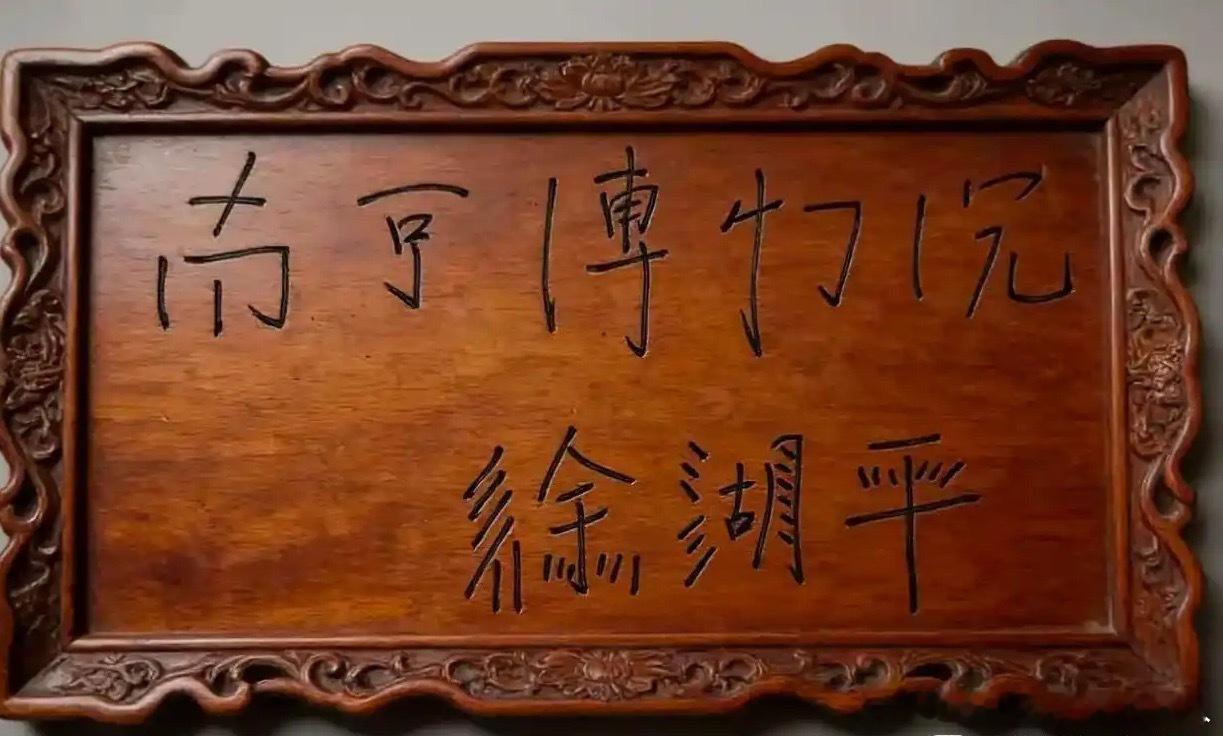 南京博物院
徐湖平